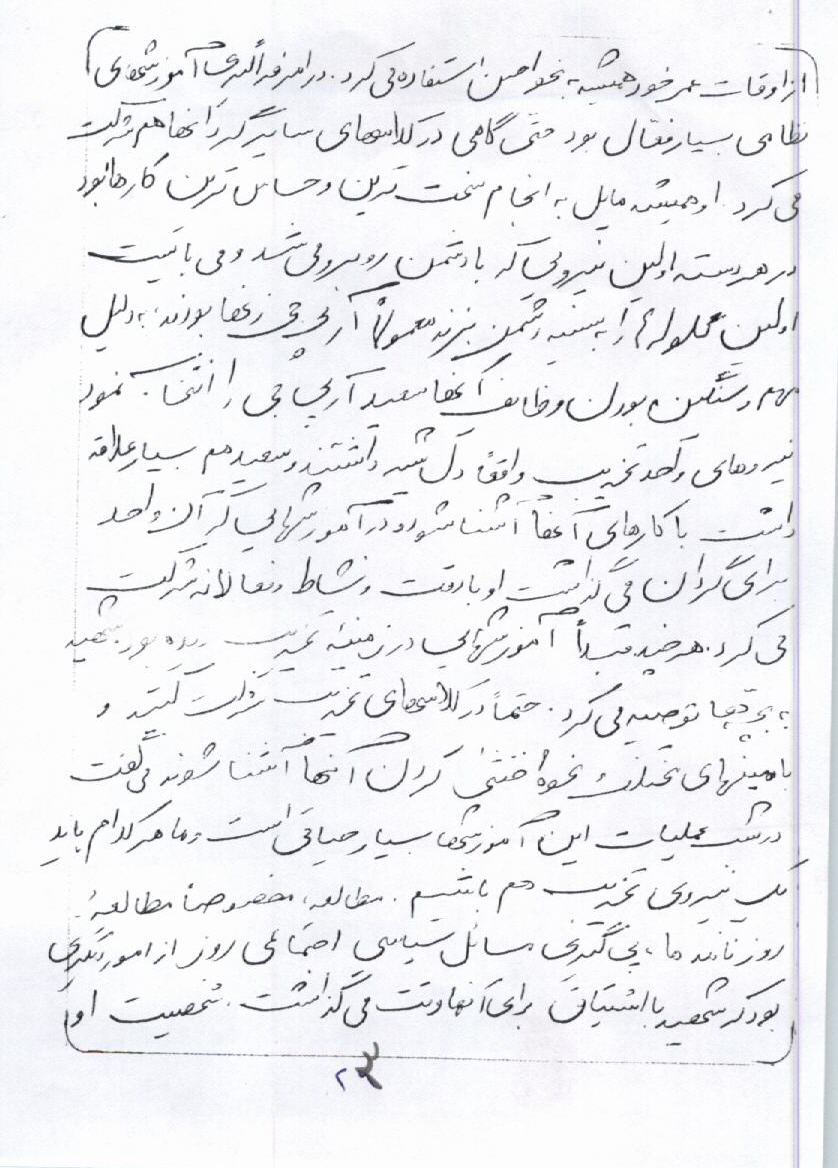 از اوقات عمر خود همیشه به نحو احسن استفاده می کرد. در امر فراگیری آموزشهای
نظامی بسیار فعال بود حتی گاهی در کلاسهای سایر گردانها هم شرکت
می کرد. او همیشه مایل به انجام سخت ترین و حساس ترین کارها بود
در هر دسته اولین نیرویی که با دشمن روبرو می شد و می بایست
اولین گلوله ها را به سینه دشمن بزند معمولاً آرپی جی زنها بودند، به دلیل
مهم و سنگین بودن وظایف آنها سعید آرپی جی را انتخاب نمود
نیروهای واحد تخریب واقعاً دل شیر داشتند و سعید هم بسیار علاقه
داشت با کارهای آنها آشنا شود و در آموزشهایی که آن واحد
برای گردان می گذاشت او با دقت و نشاط و فعالانه شرکت
می کرد. هر چند قبلاً آموزشهایی در زمینه تخریب دیده بود. شهید
به بچه ها توصیه می کرد. حتماً در کلاسهای تخریب شرکت کنید و
با مینهای مختلف و نحوه خنثی کردن آنها آشنا شوند می گفت
در شب عملیات این آموزشها بسیار حیاتی است و ما هر کدام باید
یک نیروی تخریب هم باشیم. مطالعه، خصوصاً مطالعهٔ
روزنامه ها، پی گیری مسائل سیاسی اجتماعی روز از امور دیگری
بود که شهید با اشتیاق برای آنها وقت می گذاشت. شخصیت او